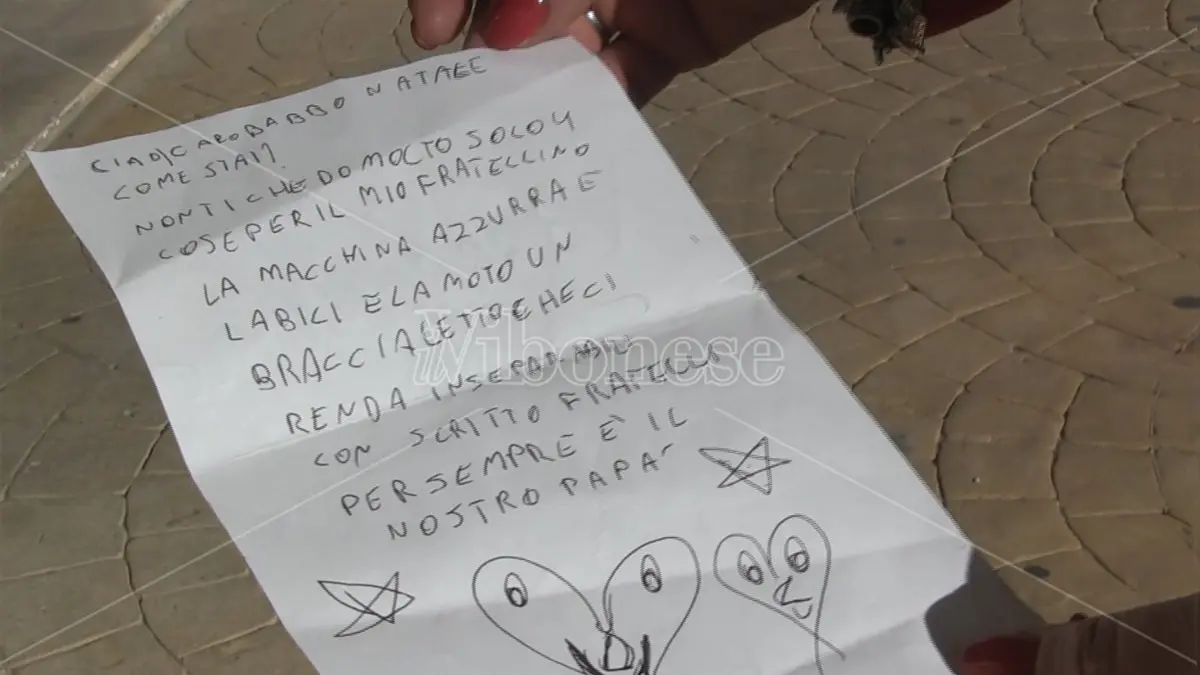 CIAO CARO BABBO NATALE
COME STAI?
NON TI CHEDO MOLTO SOLO 4
COSE PER IL MIO FRATELLINO
LA MACCHINA AZZURRA E
LA BICI E LA MOTO UN
BRACCIALETTO CHE CI
RENDA INSEPARABILI
CON SCRITTO FRATELLI
PER SEMPRE E' IL
NOSTRO PAPA'
ilVibonese